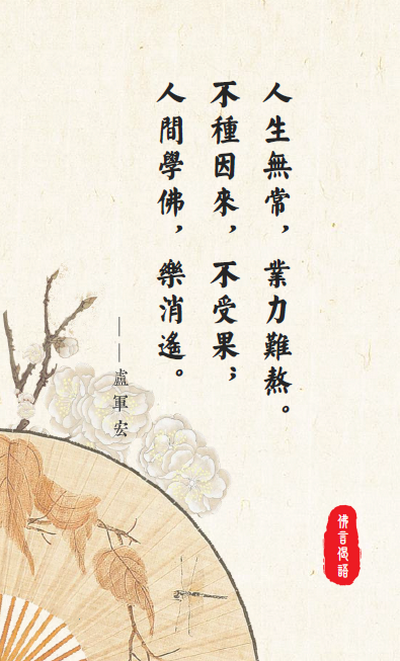 人生無常，業力難熬。
不種因來，不受果；
人間學佛，樂消遙。
——盧軍宏
佛言偈語